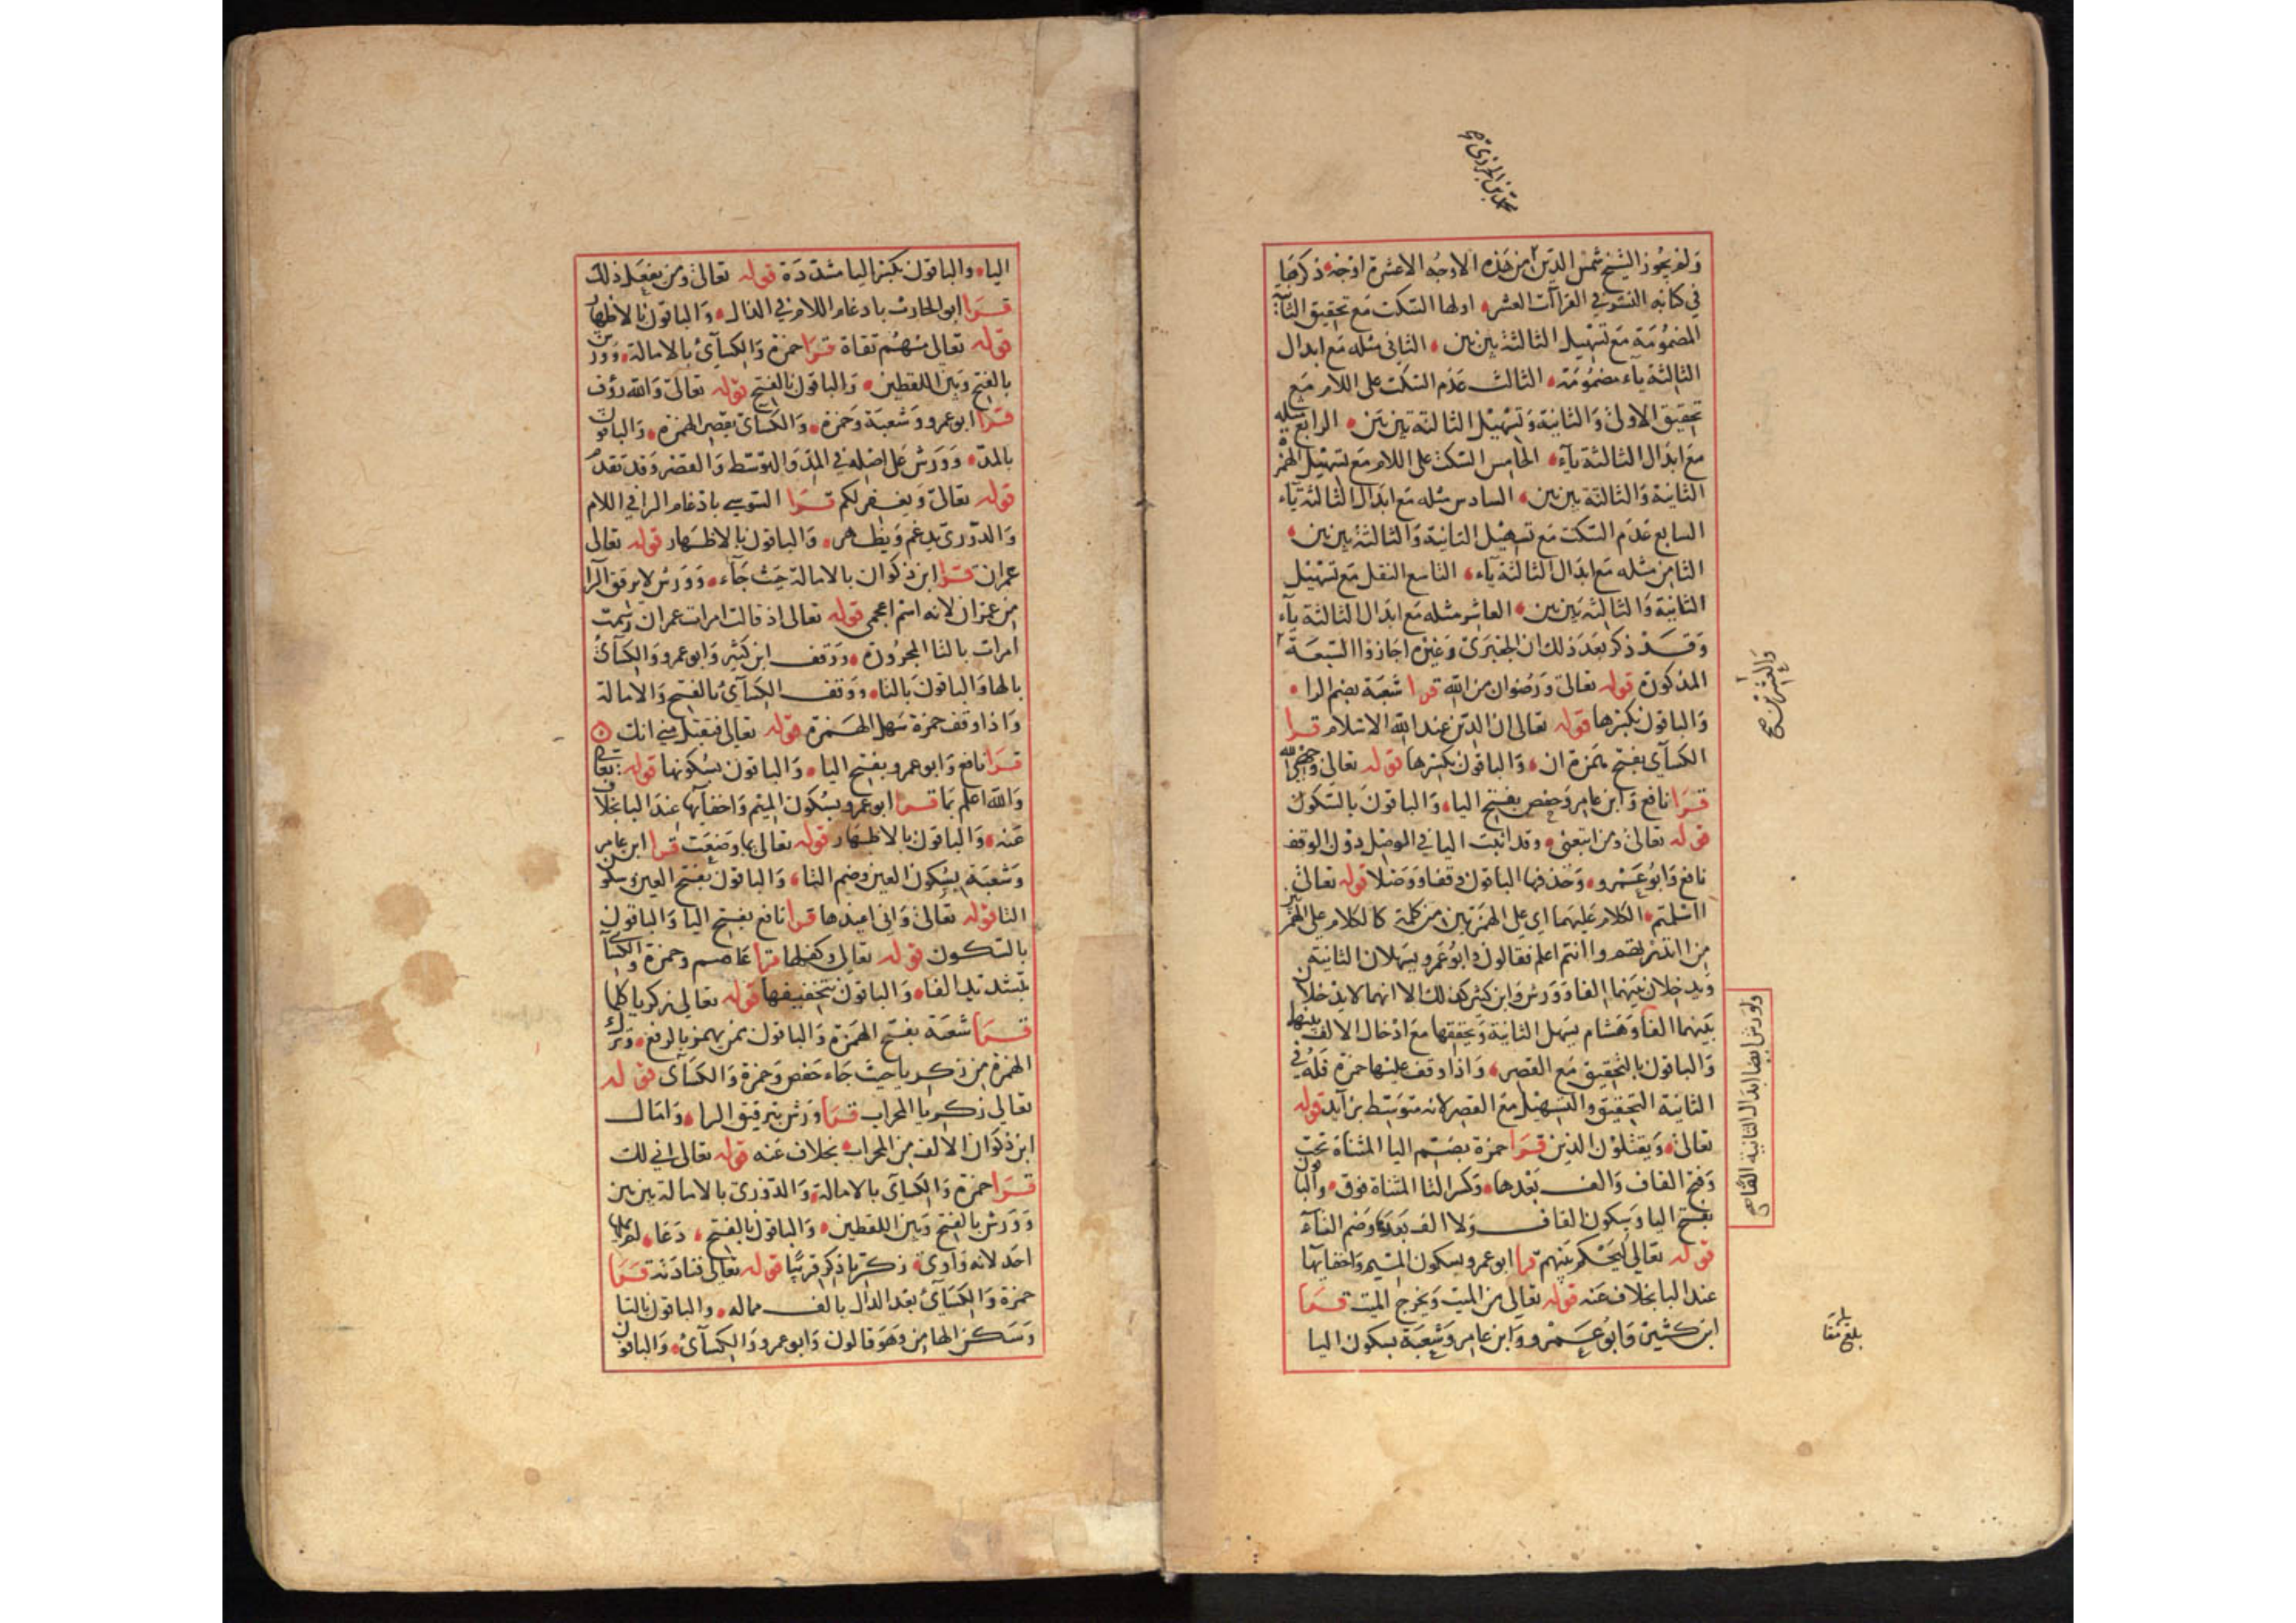 محمد بن الجزري صح
ولم يجوز الشيخ شمس الدين من هذه الاوجه الا عشرة اوجه ذكرها
في كتابه النشر في القراآت العشر اولها السكت مع تحقيق الثانية
المضمومة مع تسهيل الثالثة بين بين الثاني مثله مع ابدال
الثالثة ياء مضمومة الثالث عدم السكت على اللام مع
تحقيق الاولى والثانية وتسهيل الثالثة بين بين الرابع مثله
مع ابدال الثالثة ياء الخامس السكت على اللام مع تسهيل الهمزة
الثانية والثالثة بين بين السادس مثله مع ابدال الثالثة ياء
السابع عدم السكت مع تسهيل الثانية والثالثة بين بين
الثامن مثله مع ابدال الثالثة ياء التاسع النقل مع تسهيل
الثانية والثالثة بين بين العاشر مثله مع ابدال الثالثة ياء
وقد ذكر بعد ذلك ان الجعبري وغيره اجازوا السبعة
والعشرين صح
المذكورة قوله تعالى ورضوان من الله قرا شعبة بضم الرا
والباقون بكسرها قوله تعالى ان الدين عند الله الاسلام قرا
الكسآي بفتح همزة ان والباقون بكسرها قوله تعالى وجهي لله
قرا نافع وابن عامر وحفص بفتح اليا والباقون بالسكون
قوله تعالى ومن اتبعني وقد اثبت اليا في الوصل دون الوقف
نافع وابو عمرو وحذفها الباقون وقفا ووصلا قوله تعالى
ااسلمتم الكلام عليهما اي على الهمزتين من كلمة كالكلام على الهمزتين
من اانذرتهم واانتم اعلم فقالون وابو عمرو يسهلان الثانية
ويدخلان بينهما الفا وورش وابن كثير كذلك الا انهما لا يدخلان
بينهما الفا وهشام يسهل الثانية ويحققها مع ادخال الالف بينهما
ولورش ايضا ابدال الثانية الفا صح
والباقون بالتحقيق مع القصر واذا وقف عليها حمزة فله في
الثانية التحقيق والتسهيل مع القصر لانه متوسط بزآيد قوله
تعالى ويقتلون الذين قرا حمزة بضم اليا المثناة تحت
وفتح القاف والف بعدها وكسر التا المثناة فوق والباقون
بفتح اليا وسكون القاف ولا الف بعدها وضم التآء
قوله تعالى ليحكم بينهم قرا ابو عمرو بسكون الميم واخفآيها
عند البا بخلاف عنه قوله تعالى من الميت ويخرج الميت قرا
ابن كثير وابو عمرو وابن عامر وشعبة بسكون اليا
بلغ مقا
بلة
الياء والباقون بكسر اليا مشددة قوله تعالى ومن يفعل ذلك
قرا ابو الحارث بادغام اللام في الذال والباقون بالاظهار
قوله تعالى منهم تقاة قرا حمزة والكسآي بالامالة وورش
بالفتح وبين اللفظين والباقون بالفتح قوله تعالى والله رؤف
قرا ابو عمرو وشعبة وحمزة والكسآي بقصر الهمزة والباقون
بالمد وورش على اصله في المد والتوسط والقصر وقد تقدم
قوله تعالى ويغفر لكم قرا السوسي بادغام الرا في اللام
والدوري يدغم ويظهر والباقون بالاظهار قوله تعالى
عمران قرا ابن ذكوان بالامالة حيث جآء وورش لا يرقق الرا
من عمران لانه اسم اعجمي قوله تعالى اذ قالت امرات عمران رسمت
امرات بالتا المجرورة ووقف ابن كثير وابو عمرو والكسآي
بالها والباقون بالتا ووقف الكسآي بالفتح والامالة
واذا وقف حمزة سهل الهمزة قوله تعالى فتقبل مني انك
قرا نافع وابو عمرو بفتح اليا والباقون بسكونها قوله تعالى
والله اعلم بما قرا ابو عمرو بسكون الميم واخفآيها عند البا بخلاف
عنه والباقون بالاظهار قوله تعالى بما وضعت قرا ابن عامر
وشعبة بسكون العين وضم التا والباقون بفتح العين وسكون
التا قوله تعالى واني اعيذها قرا نافع بفتح اليا والباقون
بالسكون قوله تعالى وكفلها قرا عاصم وحمزة والكسآي
بتشديد الفا والباقون بتخفيفها قوله تعالى زكريا كلما
قرا شعبة بفتح الهمزة والباقون ممن يهمز بالرفع وترك
الهمزة من زكريا حيث جاء حفص وحمزة والكسآي قوله
تعالى زكريا المحراب قرا ورش بترقيق الرا وامال
ابن ذكوان الالف من المحراب بخلاف عنه قوله تعالى انى لك
قرا حمزة والكسآي بالامالة والدوري بالامالة بين بين
وورش بالفتح وبين اللفظين والباقون بالفتح دعا لم يملها
احد لانه واوي ذكرنا ذكر قريبا قوله تعالى فنادته قرا
حمزة والكسآي بعد الدال بالف ممالة والباقون بالتا
وسكن الها من وهو قالون وابو عمرو والكسآي والباقون